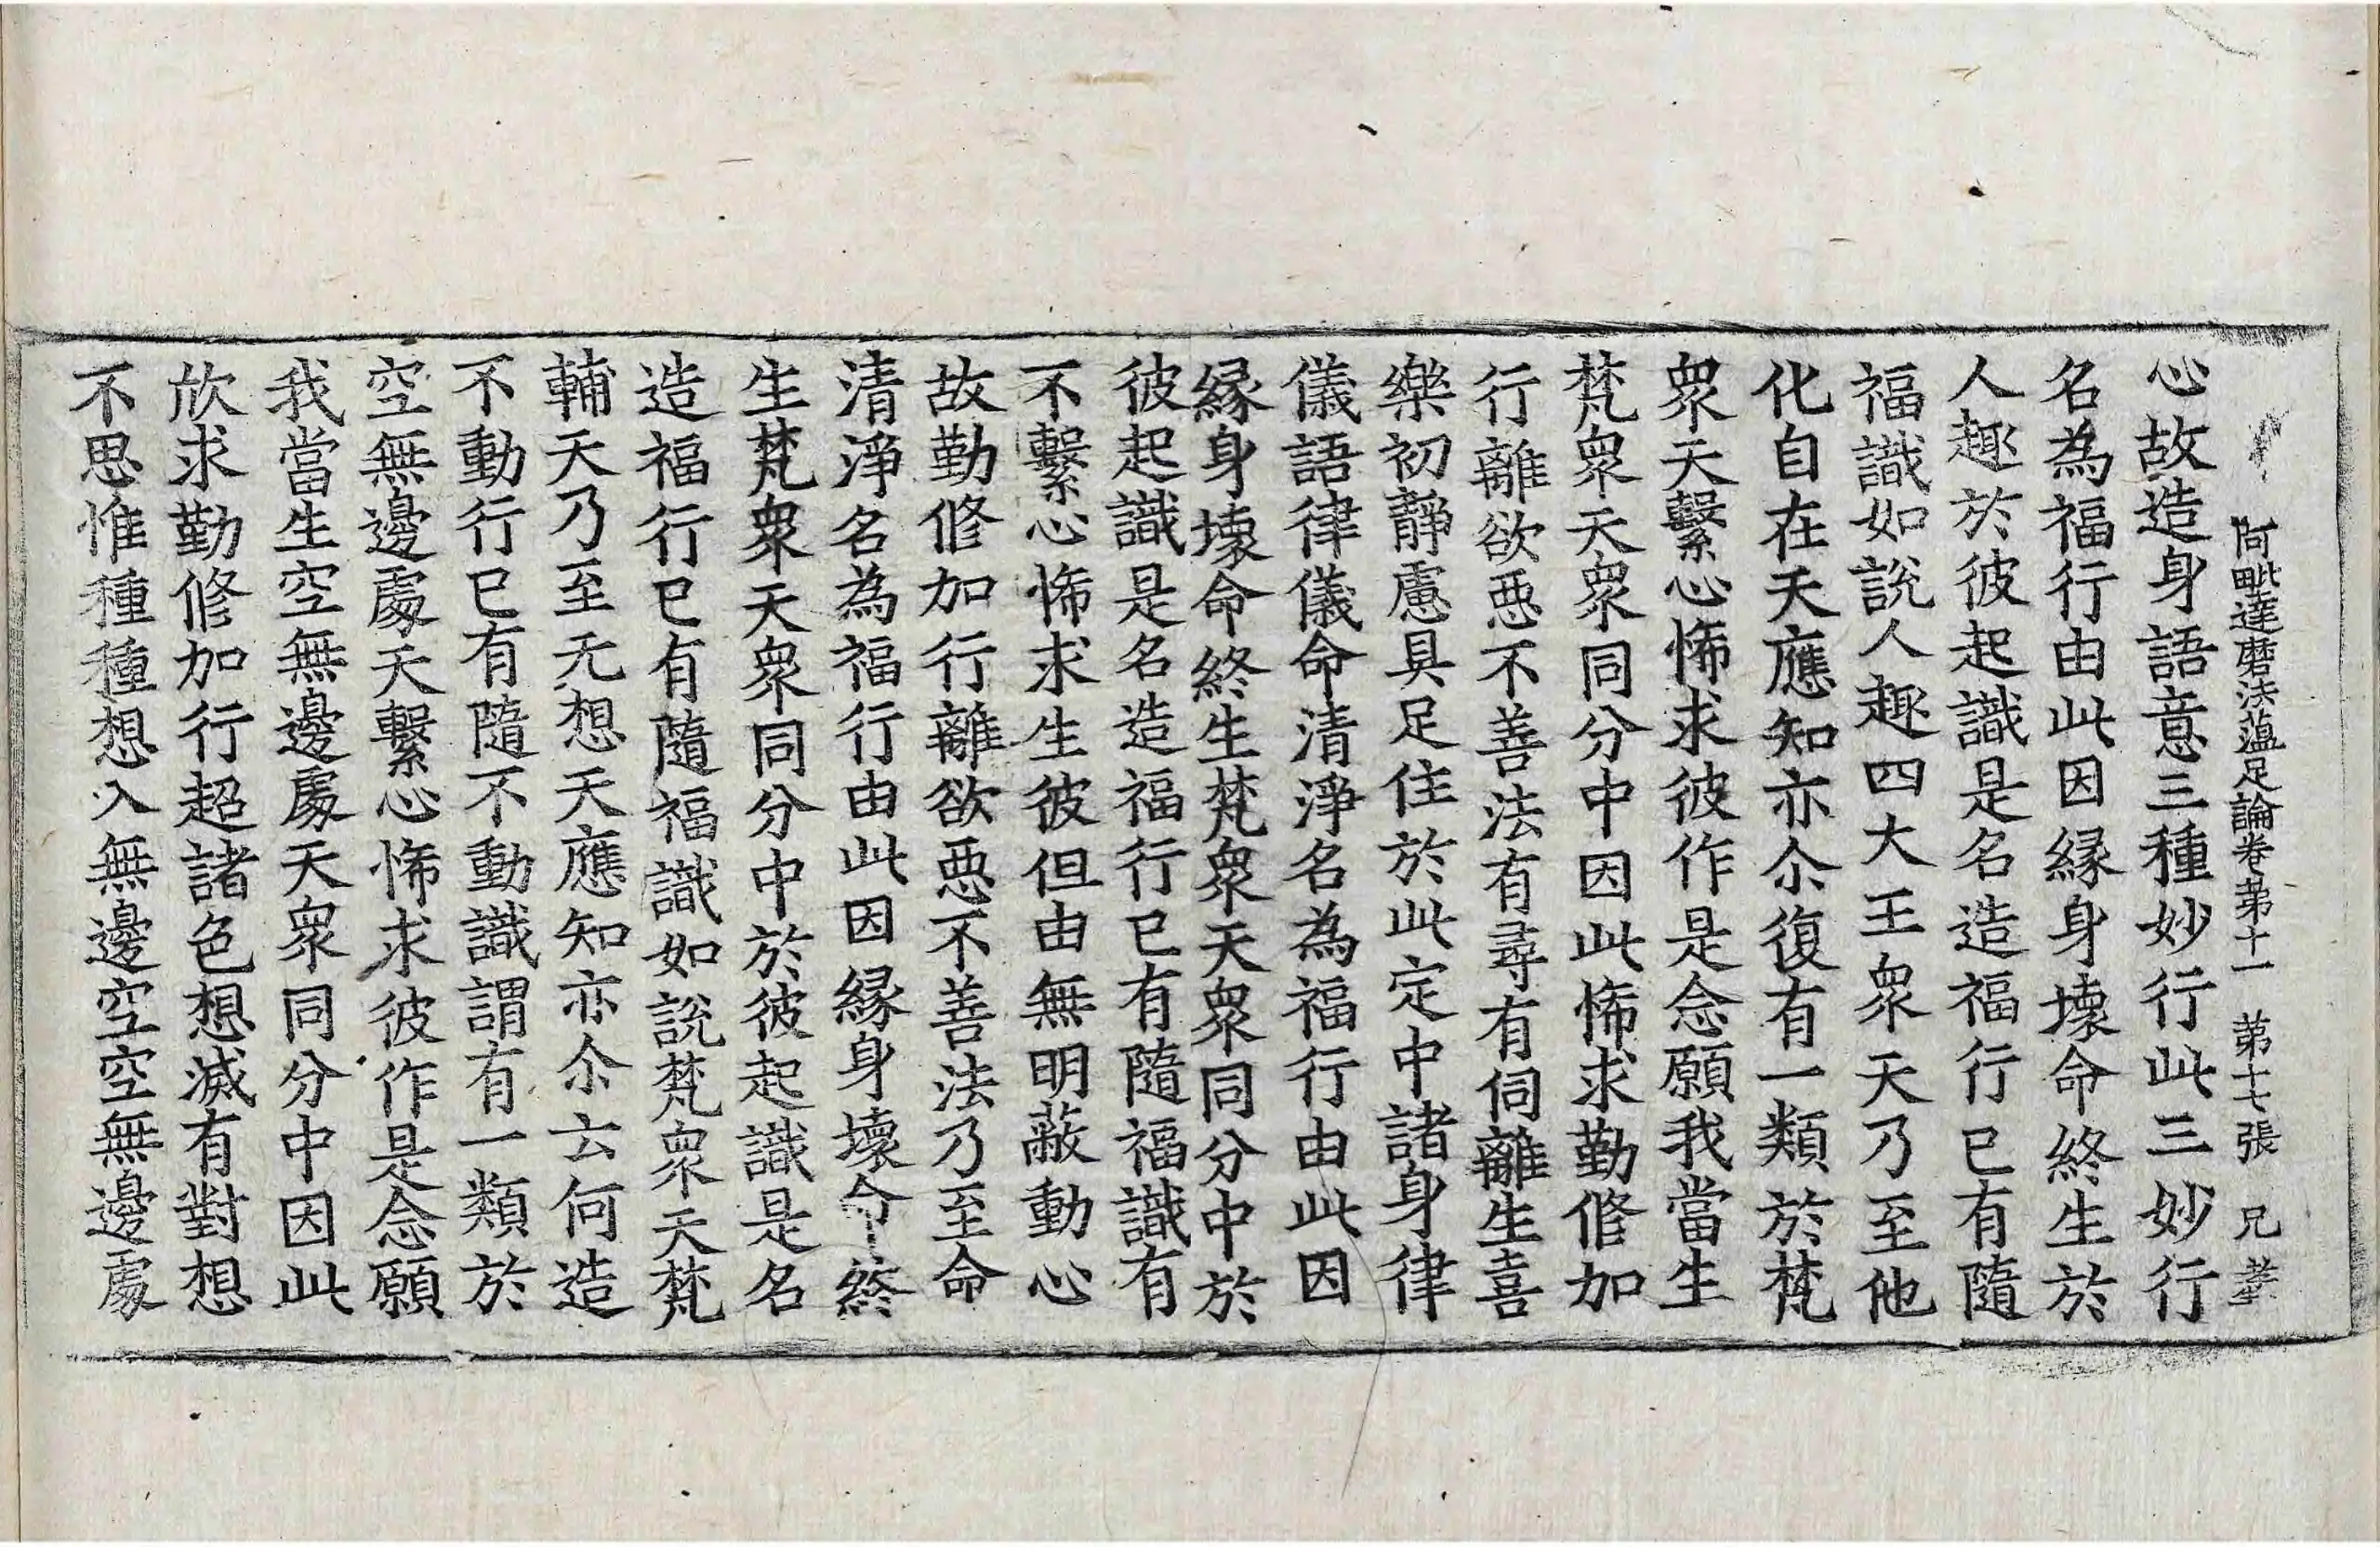 阿毗達磨法蘊足論卷第十一 第十七張 兄
心故造身語意三種妙行此三妙行
名為福行由此因緣身壞命終生於
人趣於彼起識是名造福行已有隨
福識如說人趣四大王眾天乃至他
化自在天應知亦尒復有一類於梵
眾天繫心悕求彼作是念願我當生
梵眾天眾同分中因此悕求勤修加
行離欲惡不善法有尋有伺離生喜
樂初靜慮具足住於此定中諸身律
儀語律儀命清淨名為福行由此因
緣身壞命終生梵眾天眾同分中於
彼起識是名造福行已有隨福識有
不繫心悕求生彼但由無明蔽動心
故勤修加行離欲惡不善法乃至命
清淨名為福行由此因緣身壞命終
生梵眾天眾同分中於彼起識是名
造福行已有隨福識如說梵眾天梵
輔天乃至无想天應知亦尒云何造
不動行已有隨不動識謂有一類於
空無邊處天繫心悕求彼作是念願
我當生空無邊處天眾同分中因此
欣求勤修加行超諸色想滅有對想
不思惟種種想入無邊空空無邊處